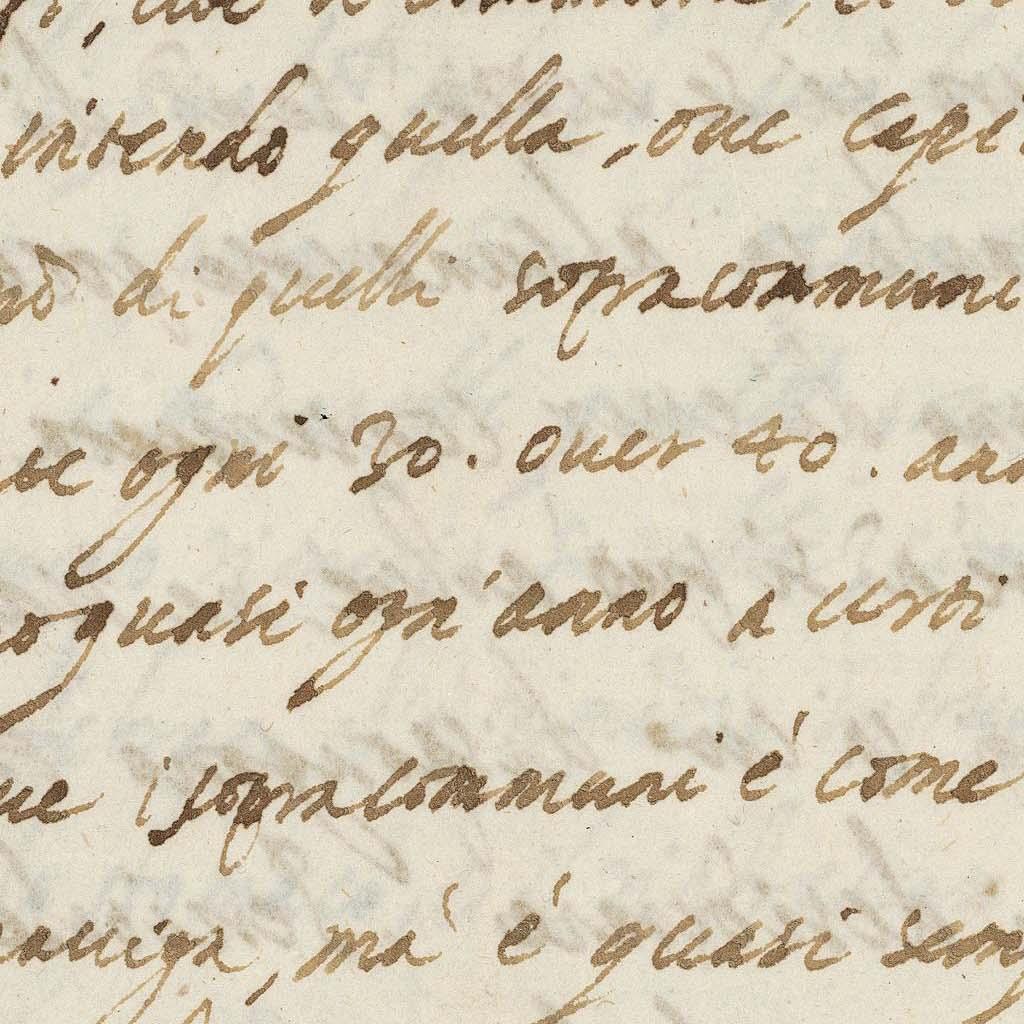 intendo quella, oue capi
nō di quelli sopracommuni
se ogni 30. ouer 40. ann
oquasi ogn'anno a certi
ue i sopracommuni é come
nauiga, mà é quasi semp